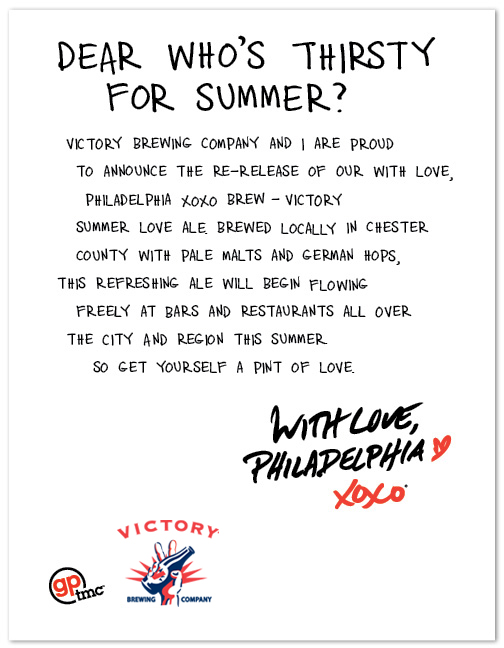 DEAR WHO'S THIRSTY
FOR SUMMER?
VICTORY BREWING COMPANY AND I ARE PROUD
TO ANNOUNCE THE RE-RELEASE OF OUR WITH LOVE,
PHILADELPHIA XOXO BREW – VICTORY
SUMMER LOVE ALE. BREWED LOCALLY IN CHESTER
COUNTY WITH PALE MALTS AND GERMAN HOPS,
THIS REFRESHING ALE WILL BEGIN FLOWING
FREELY AT BARS AND RESTAURANTS ALL OVER
THE CITY AND REGION THIS SUMMER.
SO GET YOURSELF A PINT OF LOVE.
WITH LOVE,
PHILADELPHIA
XOXO
VICTORY
BREWING COMPANY
gp
tmc